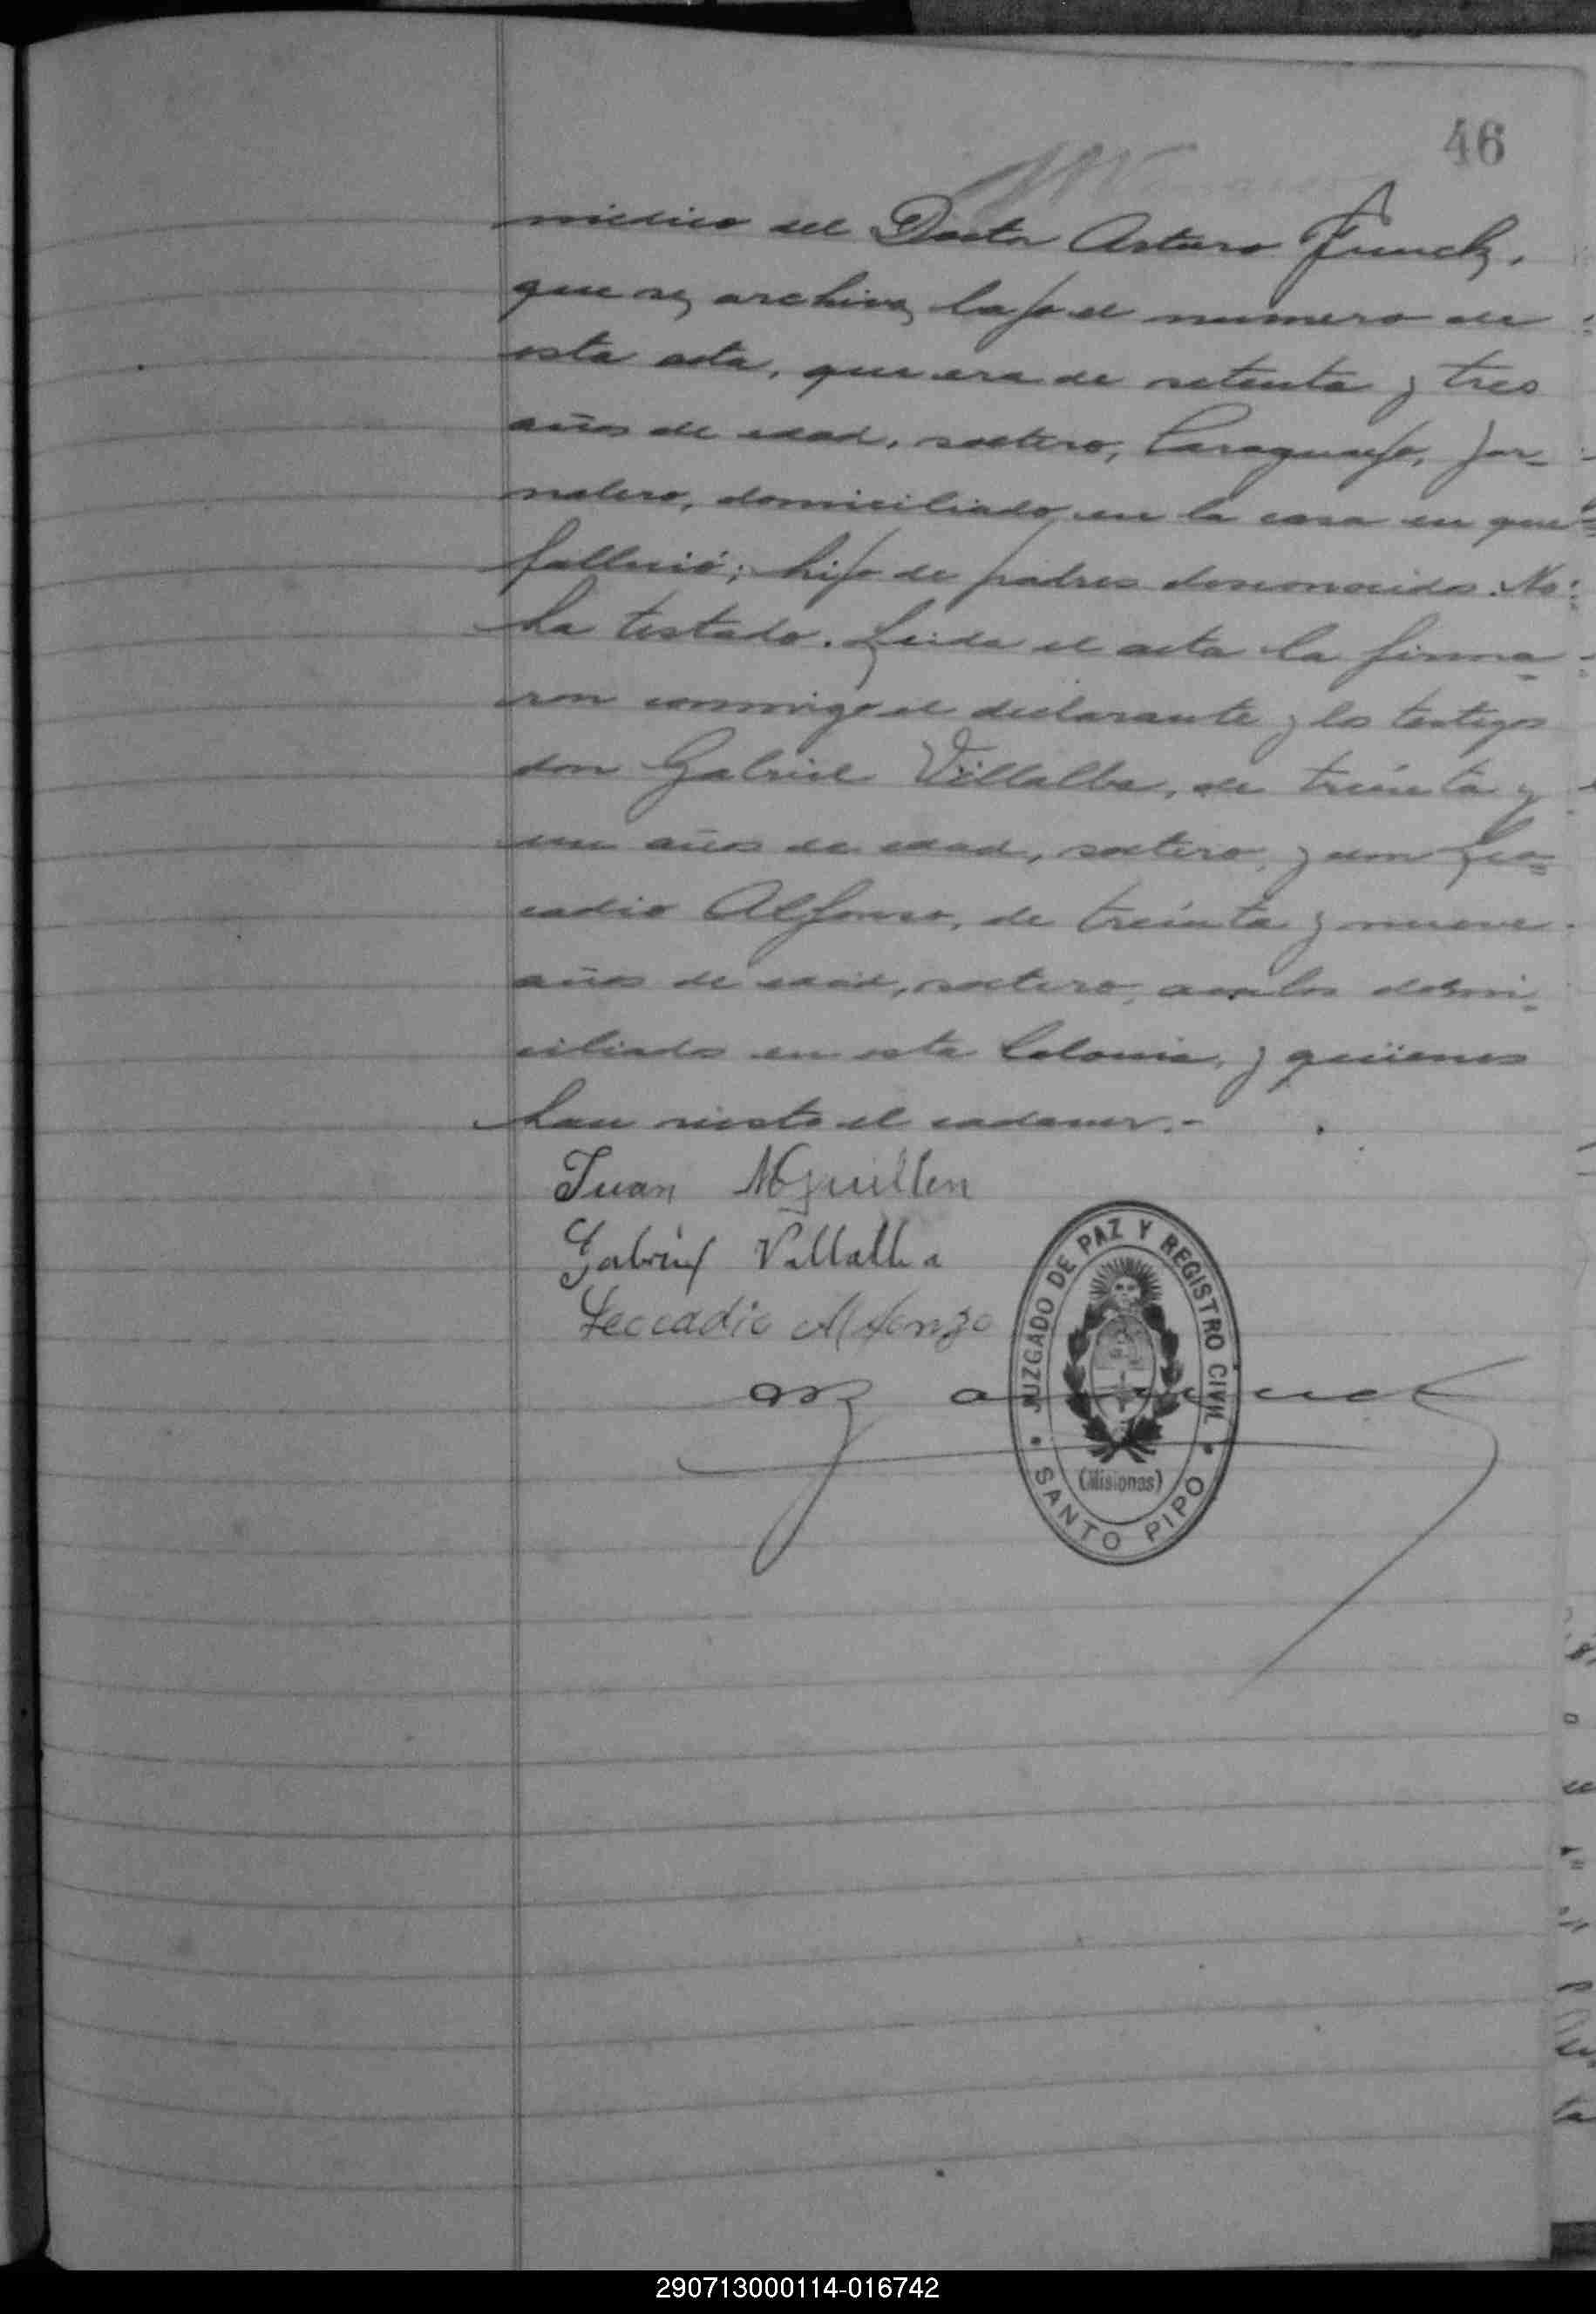 46
médico del Doctor Arturo Funck,
que se archiva bajo el numero de
esta acta, que era de setenta y tres
años de edad, soltero, Paraguayo, jor-
nalero, domiciliado en la casa en que
falleció; hijo de padres desconocidos. No
ha testado. Leida el acta la firma-
ron conmigo el declarante y los testigos
don Gabriel Villalba, de treinta y
un años de edad, soltero, y don Leo=
cadio Alfonso, de treinta y nueve
años de edad, soltero, ambos domi-
ciliados en esta Colonia, y quienes
han visto el cadaver.-
Juan Guillen
Gabriel Villalba
Leocadio Alfonzo
JUZGADO DE PAZ Y REGISTRO CIVIL
(Misiones)
SANTO PIPO
290713000114-016742